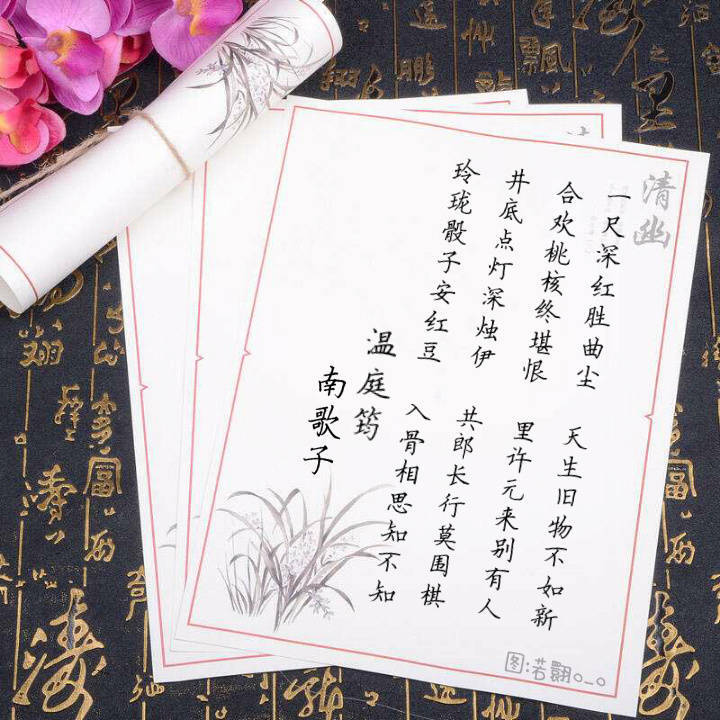 清幽
一尺深红胜曲尘
天生旧物不如新
合欢桃核终堪恨
里许元来别有人
井底点灯深烛伊
共郎长行莫围棋
玲珑骰子安红豆
入骨相思知不知
温庭筠
南歌子
图:若翾o_o